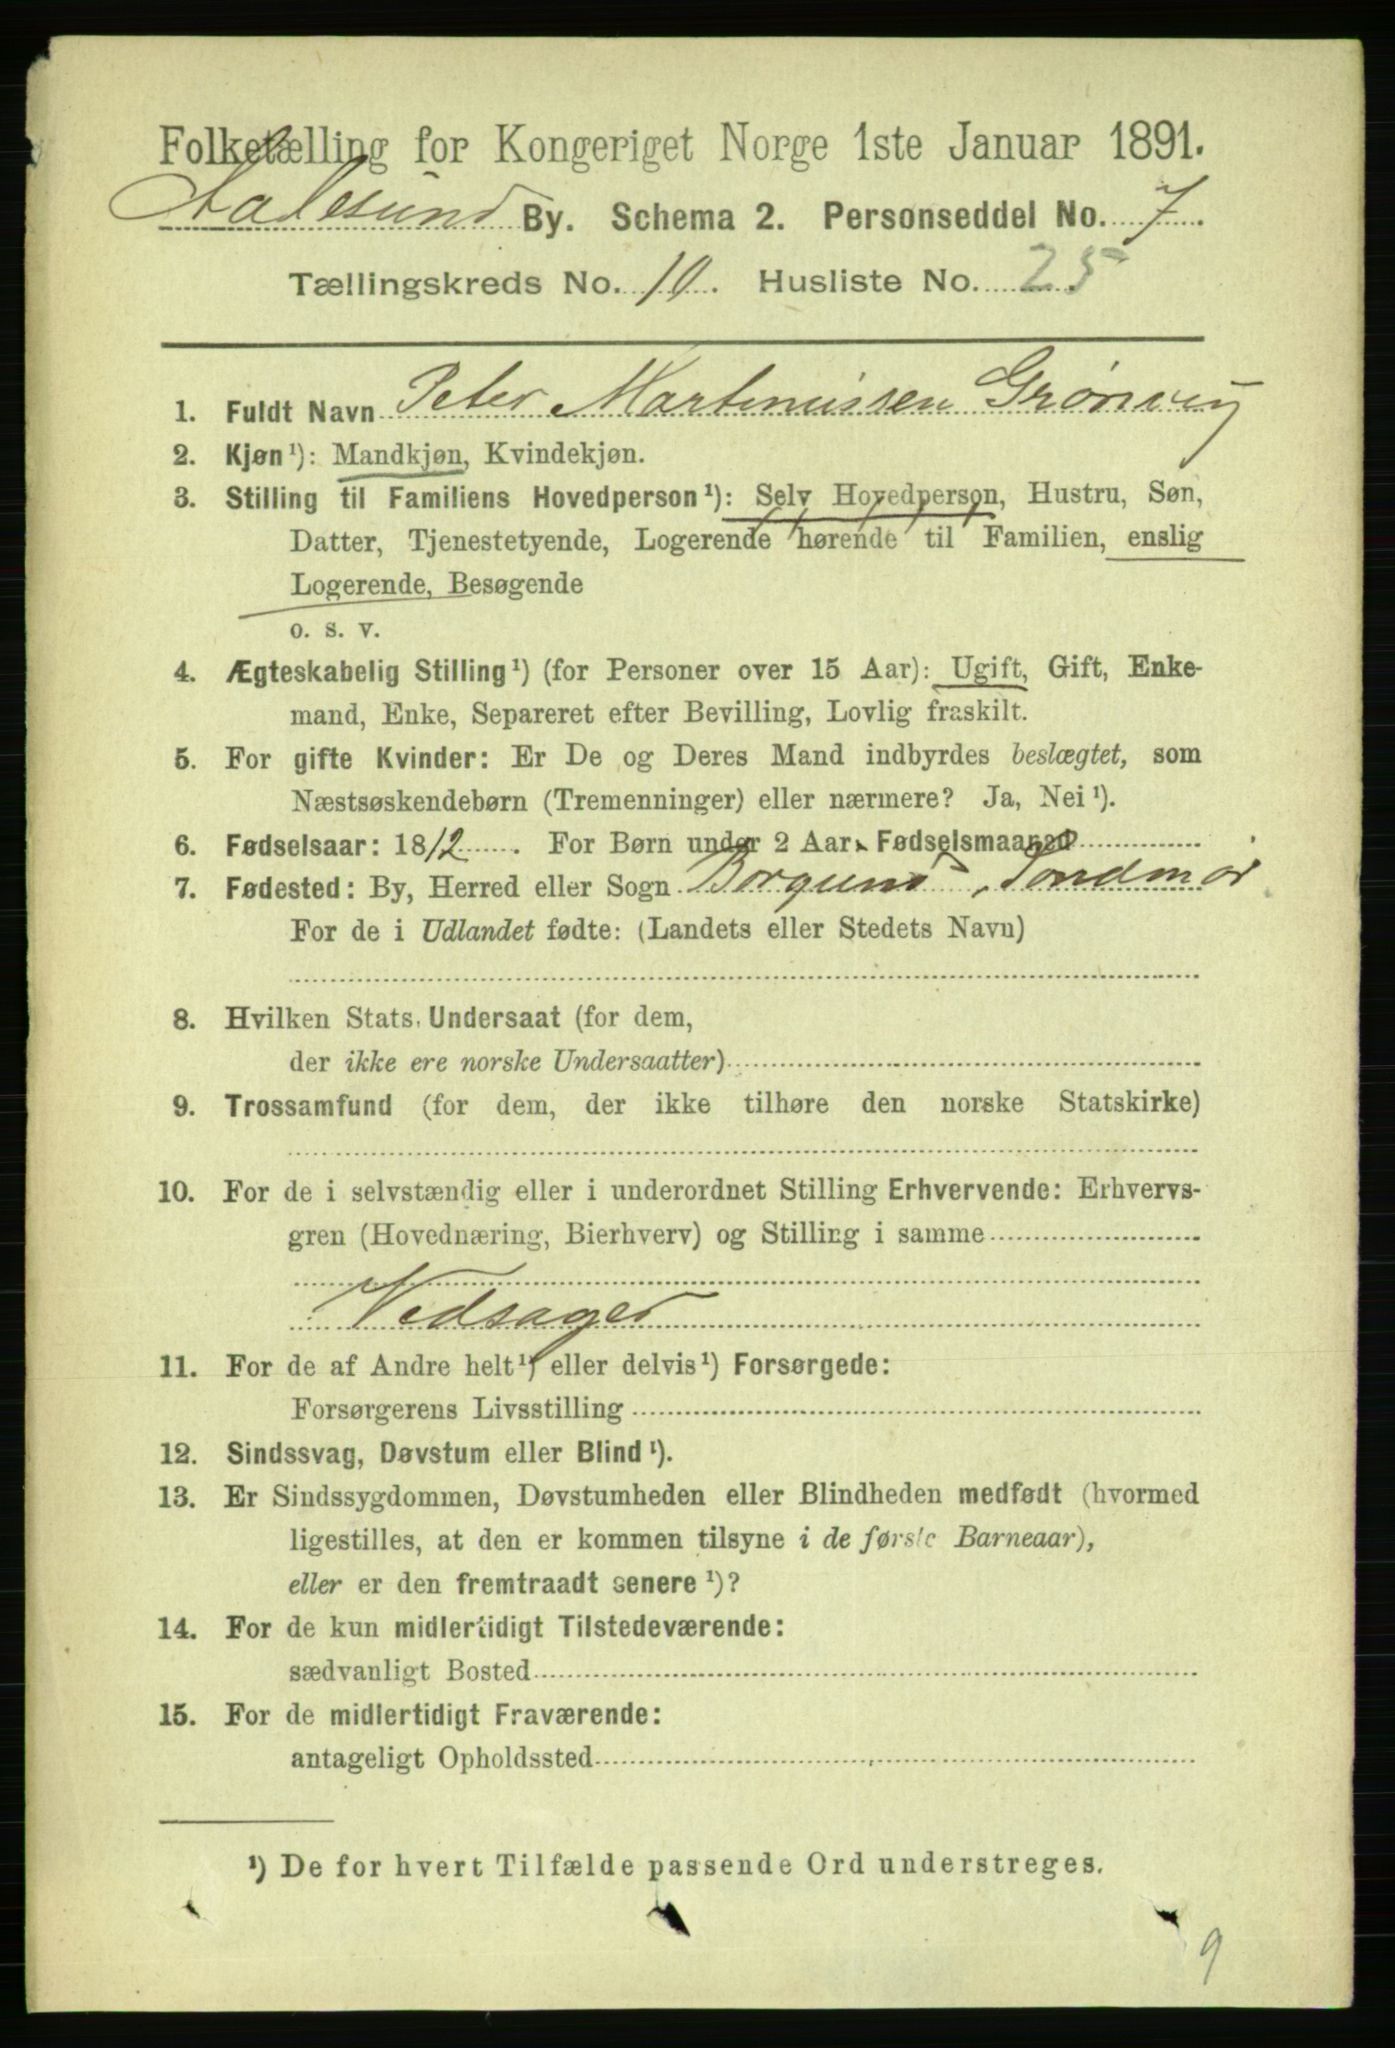 Folketælling for Kongeriget Norge 1ste Januar 1891.
Aalesund By. Schema 2. Personseddel No. 7.
Tællingskreds No. 10. Husliste No. 25
1. Fuldt Navn Peter Martinussen Grønvig
2. Kjøn¹): Mandkjøn, Kvindekjøn.
3. Stilling til Familiens Hovedperson¹): Selv Hovedperson, Hustru, Søn,
Datter, Tjenestetyende, Logerende hørende til Familien, enslig
Logerende, Besøgende
o. s. v.
4. Ægteskabelig Stilling¹) (for Personer over 15 Aar): Ugift, Gift, Enke-
mand, Enke, Separeret efter Bevilling, Lovlig fraskilt.
5. For gifte Kvinder: Er De og Deres Mand indbyrdes beslægtet, som
Næstsøskendebørn (Tremenninger) eller nærmere? Ja, Nei¹).
6. Fødselsaar: 1812. For Børn under 2 Aar, Fødselsmaaned
7. Fødested: By, Herred eller Sogn Borgund, Søndmør
For de i Udlandet fødte: (Landets eller Stedets Navn)
8. Hvilken Stats Undersaat (for dem,
der ikke ere norske Undersaatter)
9. Trossamfund (for dem, der ikke tilhøre den norske Statskirke)
10. For de i selvstændig eller i underordnet Stilling Erhvervende: Erhvervs-
gren (Hovednæring, Bierhverv) og Stilling i samme
Vedsager
11. For de af Andre helt¹) eller delvis¹) Forsørgede:
Forsørgerens Livsstilling
12. Sindssvag, Døvstum eller Blind¹).
13. Er Sindssygdommen, Døvstumheden eller Blindheden medfødt (hvormed
ligestilles, at den er kommen tilsyne i de første Barneaar),
eller er den fremtraadt senere¹)?
14. For de kun midlertidigt Tilstedeværende:
sædvanligt Bosted
15. For de midlertidigt Fraværende:
antageligt Opholdssted
¹) De for hvert Tilfælde passende Ord understreges.
9